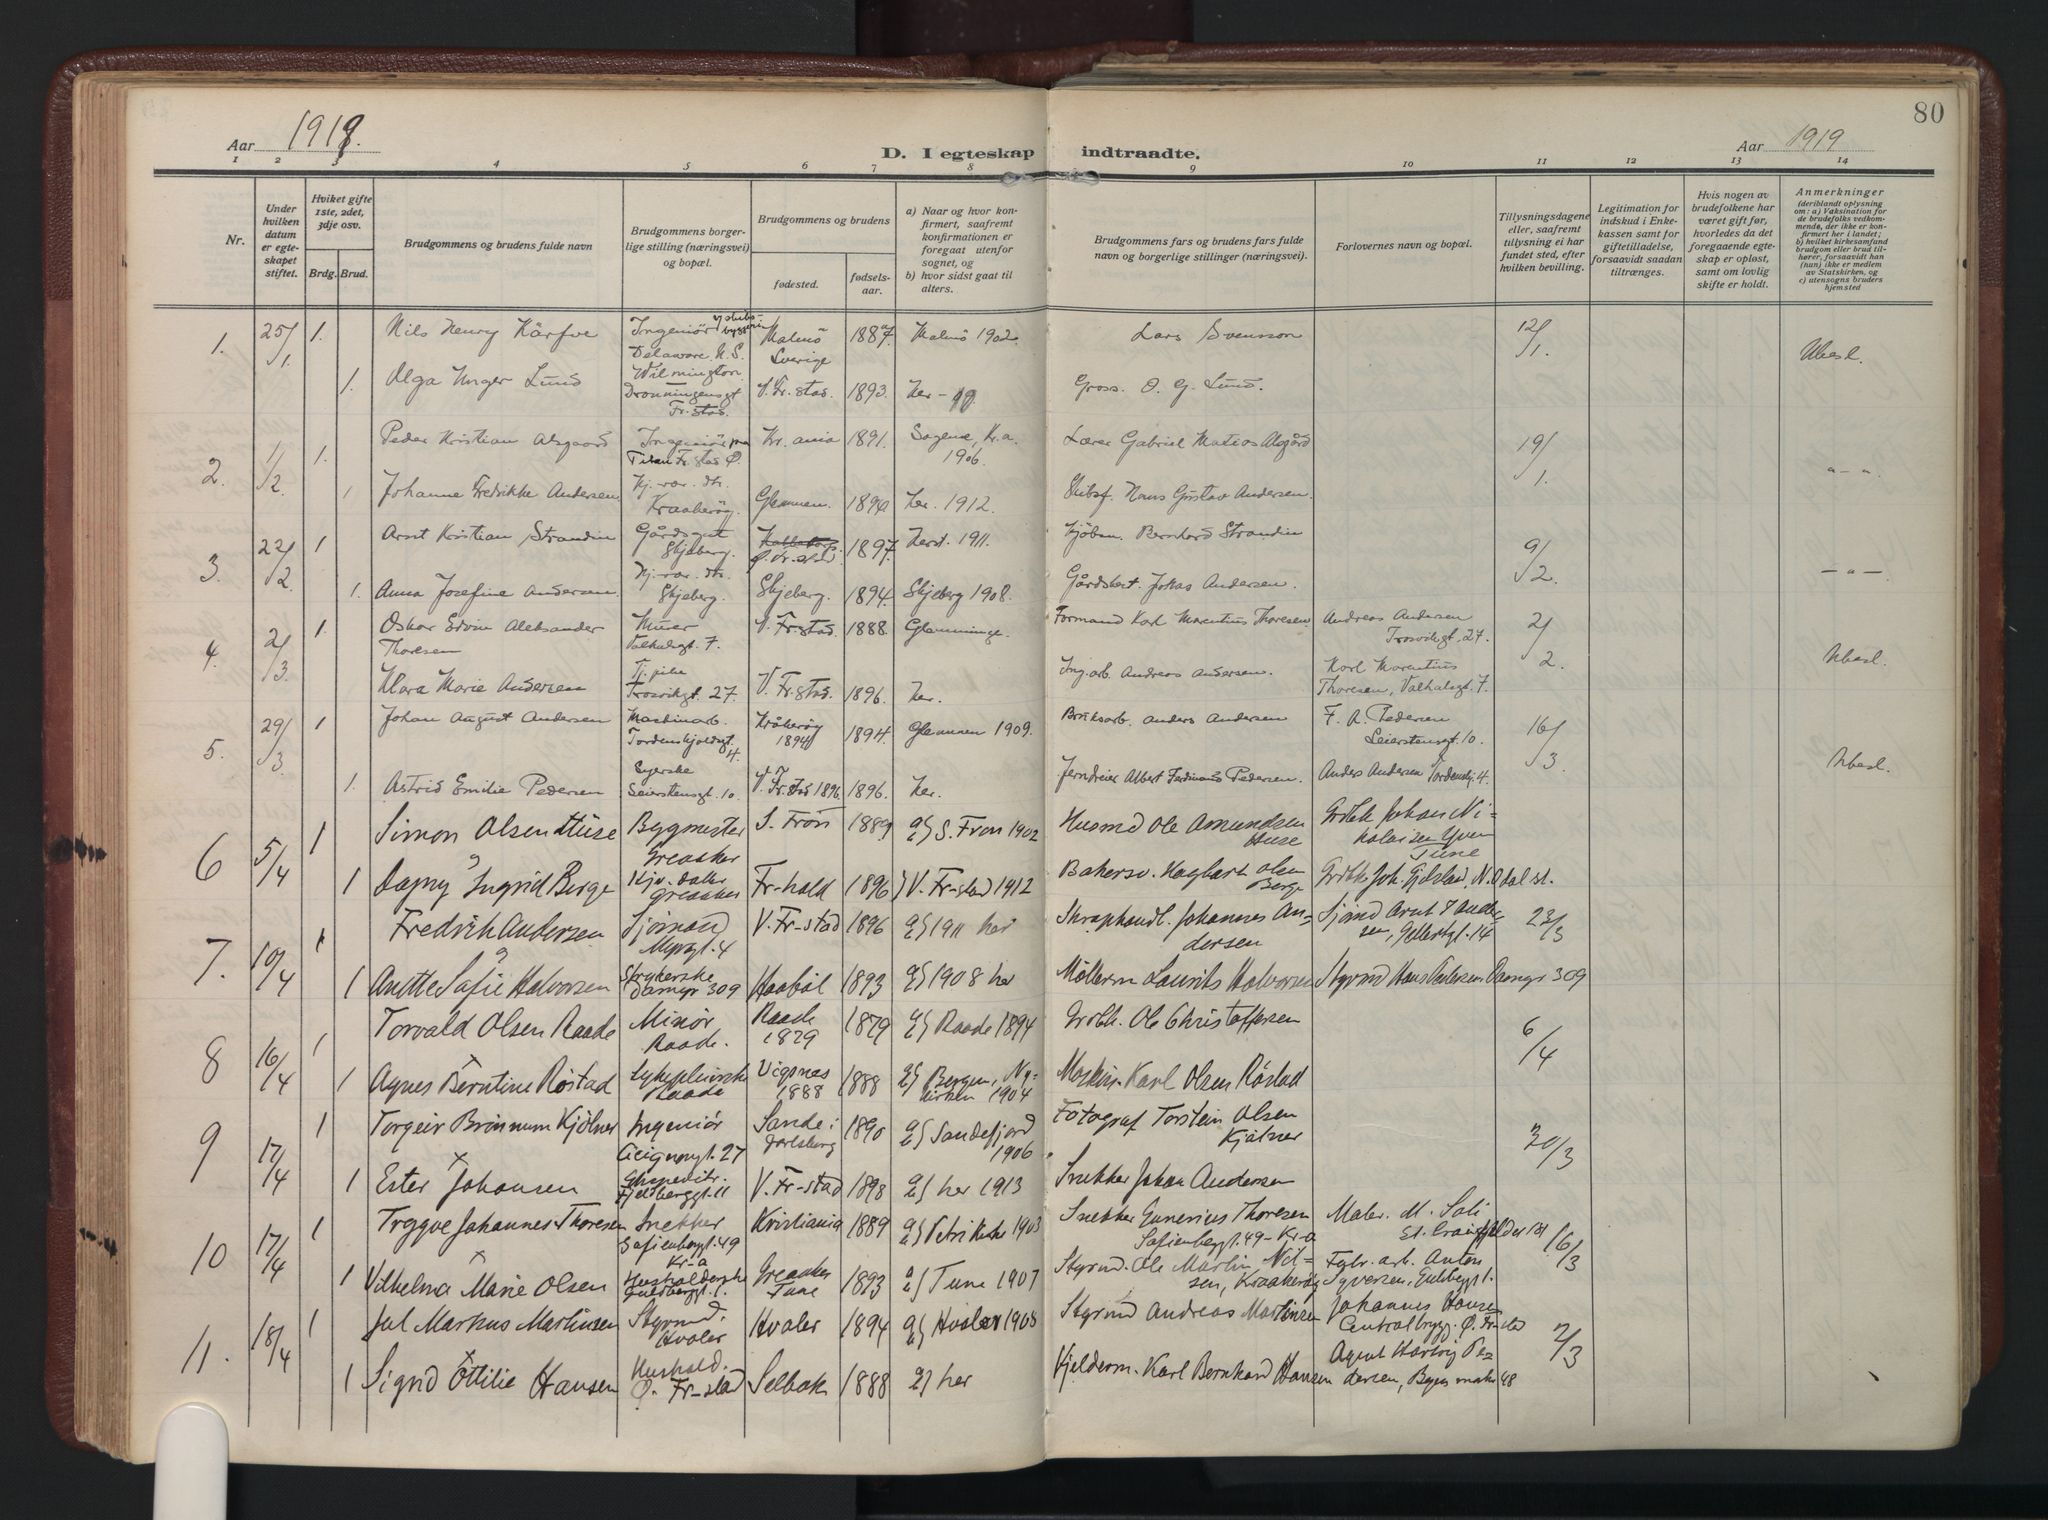 80
Aar 1919.
D. I egteskap indtraadte.
Aar 1919
1 2 3 4 5 6 7 8 9 10 11 12 13 14
Nr.
Under hvilken datum er egteskapet stiftet.
Hviket gifte 1ste, 2det, 3dje osv.
Brdg. Brud.
Brudgommens og brudens fulde navn
Brudgommens borgerlige stilling (næringsvei) og bopæl.
Brudgommens og brudens
fødested.
fødselsaar.
a) Naar og hvor konfirmert, saafremt konfirmationen er foregaat utenfor sognet, og
b) hvor sidst gaat til alters.
Brudgommens fars og brudens fars fulde navn og borgerlige stillinger (næringsvei).
Forlovernes navn og bopæl.
Tillysningsdagene eller, saafremt tillysning ei har fundet sted, efter hvilken bevilling.
Legitimation for indskud i Enkekassen samt for giftetilladelse, forsaavidt saadan tiltrænges.
Hvis nogen av brudefolkene har været gift før, hvorledes da det foregaaende egteskap er opløst, samt om lovlig skifte er holdt.
Anmerkninger (deriblandt oplysning om: a) Vaksination for de brudefolks vedkommende, der ikke er konfirmert her i landet; b) hvilket kirkesamfund brudgom eller brud tilhører, forsaavidt han (hun) ikke er medlem av Statskirken, og c) utensogns bruders hjemsted
1. 25/1 1. Nils Henry Kärfve Ingeniör Delaware U.S. Wilmington Malmö Sverige 1887. Malmö 1902. Lars Svensson 12/1. Ubesl.
1. Olga Unger Lund Dronningensgt Fr.stad. V. Fr.stad. 1893. her - Gross. O. G. Lund.
2. 1/2 1. Peder Kristian Alsgaard Ingeniør Titan Fr.stad Ø. Kr.ania 1891. Sagene, Kr.a. 1906. Lærer Gabriel Matias Alsgård 19/1. - " -
1 Johanne Fredrikke Andersen. Hj. vær. dtr. Kraakerøy. Glemmen. 1890 her. 1912. Skibsf. Hans Gustav Andersen.
3. 22/2 1 Arnt Kristian Strandin Gårdsgut Skjeberg. Ø. Fr.stad 1897. herst. 1911. Kjöbm. Bernhard Strandin 9/2. - " -
1. Anna Josefine Andersen Hj. vær. dtr. Skjeberg. Skjeberg. 1894. Skjeberg 1908. Gårdsbest. Johas Andersen.
4. 2/3. 1. Oskar Edvin Aleksander Thoresen Murer Valhalsgt. 7. V. Fr.stad. 1888. Glemminge. Formand Karl Marentius Thoresen Andreas Andersen Trosvikgt. 27. 2/2. Ubesl.
Klara Marie Andersen Tj.pike Trosvikgt. 27 V. Fr.stad. 1896. her. Ing.arb. Andreas Andersen. Karl Marentius Thoresen, Valhalsgt. 7.
5. 29/3. 1 Johan August Andersen Maskinarb. Tordenskjoldsgt. 4. Kråkerøy 1894 1894. Glemmen 1909. Bruksarb. Anders Andersen F. A. Pedersen Leierstensgt. 10. 16/3. Ubesl.
1. Astrid Emilie Pedersen Syerske Leierstensgt. 10. V. Fr.stad 1896 1896. her. Jerndreier Albert Ferdinand Pedersen. Anders Andersen Tordenskj. 4.
6 5/4 1 Simon Olsen Huse Bygmester Greaaker S. Fron 1889 S. Fron 1902 Husmd Ole Amundsen Huse Grdbk Johan Nikolaisen Yven Tune
1 Dagny Ingrid Berge Hjv. datter Greaaker Fr-hald 1896 V. Fr-stad 1912 Bakersv. Hagbart Olsen Berge Grdbk Joh. Gjelstad, N. Odal st.
7. 10/4 1 Fredrik Andersen Sjömand Myrgt. 4 V. Fr-stad 1896 1911 her Skraphandl. Johannes Andersen Sjömd Arnt J Andersen, Gellertgt. 14 23/3
1 Anette Sofie Halvorsen Strykerske Damyr 309 Haaböl 1893 1908 her Möllerm Laurits Halvorsen Styrmd Hans Andersen Damyr 309
8 16/4 1 Torvald Olsen Raade Minör Raade. Raade 1879 1879 Raade 1894 Grdbk. Ole Christoffersen 6/4
1 Agnes Berntine Röstad Sykepleierske Raade Vigsnes 1888 1888 Bergen, Nykirken 1904 Maskin. Karl Olsen Röstad
9 17/4 1 Torgeir Brönnum Kjölner Ingeniör Sande i Jarlsberg 1890 Sandefjord 1906 Fotograf Torstein Olsen Kjölner 30/3
1 Ester Johansen Ekspeditr. Fjeldberggt. 11 V. Fr-stad 1898 her 1913 Snekker Johan Andersen
10 17/4 1 Trygve Johannes Thoresen Snekker Sofienberggt. 49 Kr-a Kristiania 1889 Petri Kirke 1903 Snekker Gunerius Thoresen Sofienberggt. 49 - Kr-a Maler. M. Sali 16/3
1 Vilhelma Marie Olsen Husholderske Guldberggt. 1. Greaaker Tune 1893 Tune 1907 Styrmd. Ole Martin Nilsen, Kraakeröy Fabr. arb. Anton Syversen, Guldbergt 1.
11. 18/4 1 Jul Markus Martinsen Styrmd. Hvaler Hvaler 1894 Hvaler 1908 Styrmd Andreas Martinsen Johannes Hansen Centralbrygg. Ø. Fr-stad 2/3
1 Sigrid Ottilie Hansen Hushold. Ø. Fr-stad Selbak 1888 her Kjelderm. Karl Bernhard Hansen Agent Hartvig Pedersen, 48